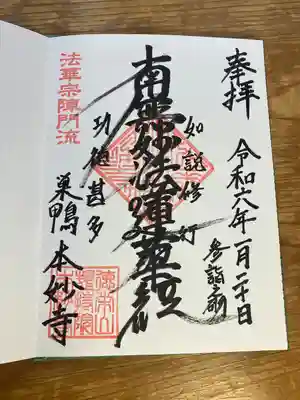 奉拝
令和六年一月二十日
参詣之砌
如説修行
南無妙法蓮華経
功徳甚多
法華宗陣門流
巣鴨 本妙寺